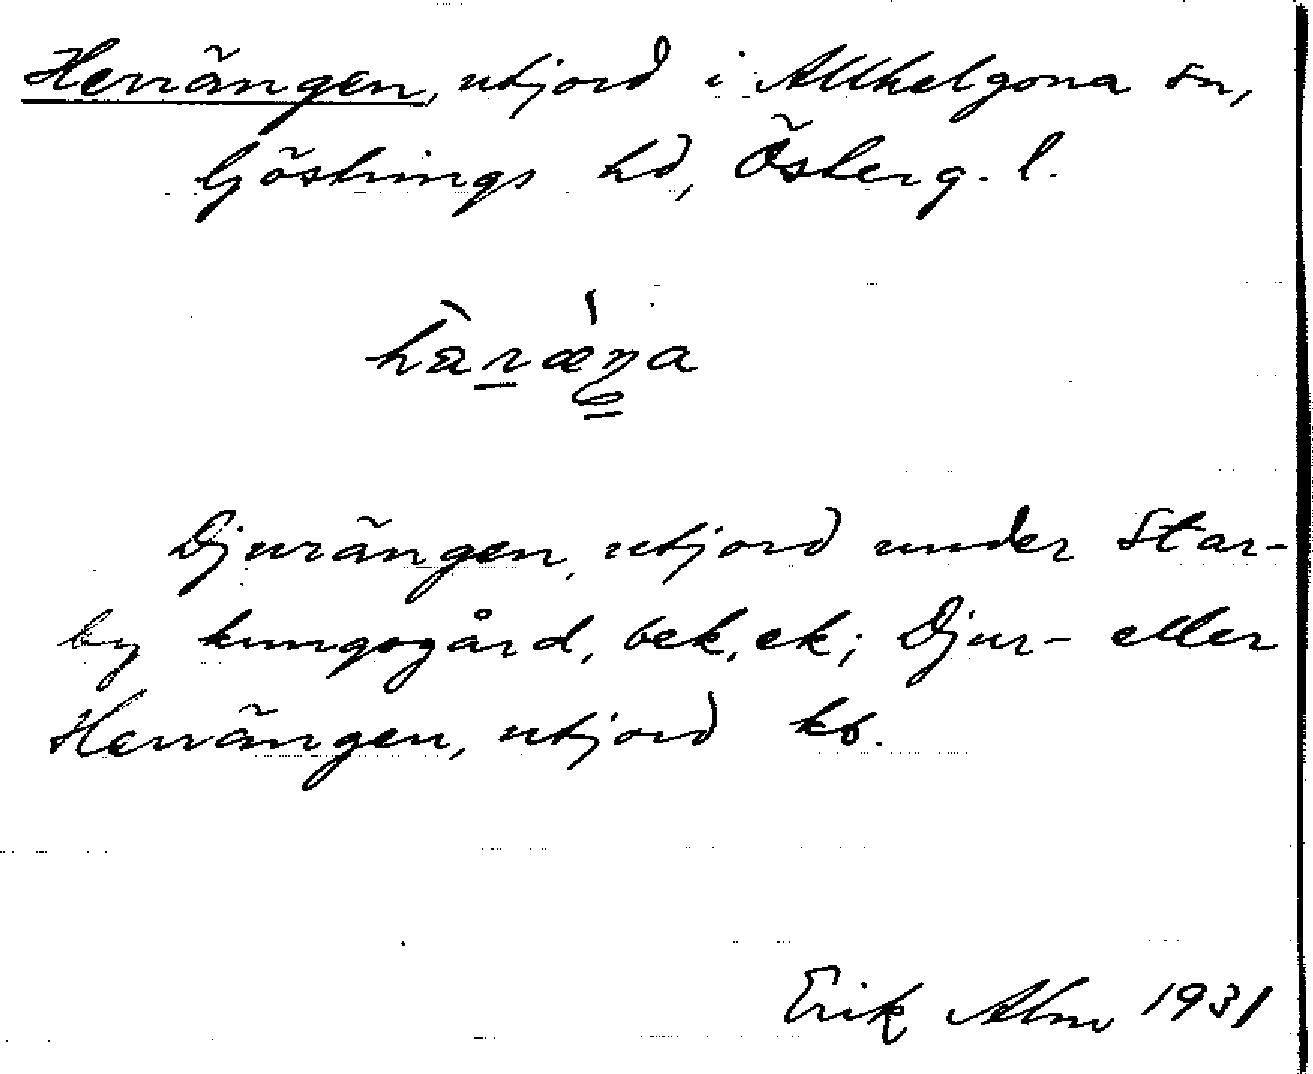 Herrängen, utjord i Allhelgona sn,
Göstrings hd, Österg. l.
hàrǽŋa
Djurängen, utjord under Star-
by kungsgård, bek, ek; Djur- eller
Herrängen, utjord kb.
Erik Alm 1931